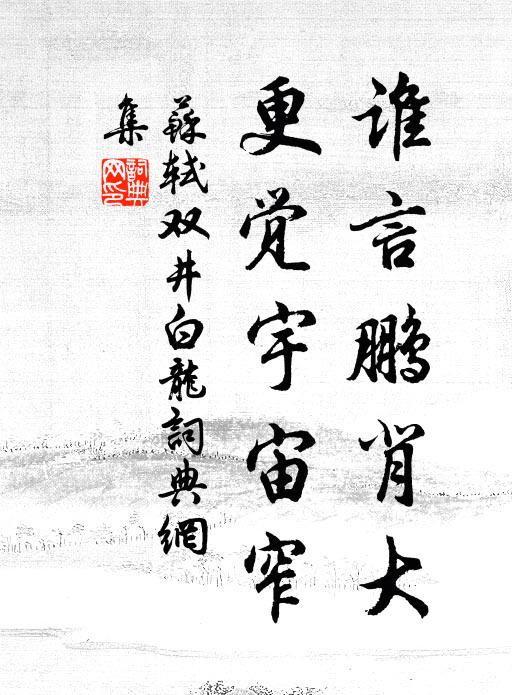 谁言鹏背大
更觉宇宙窄
蘇轼双井白龍詞典網
集
詞典
网印